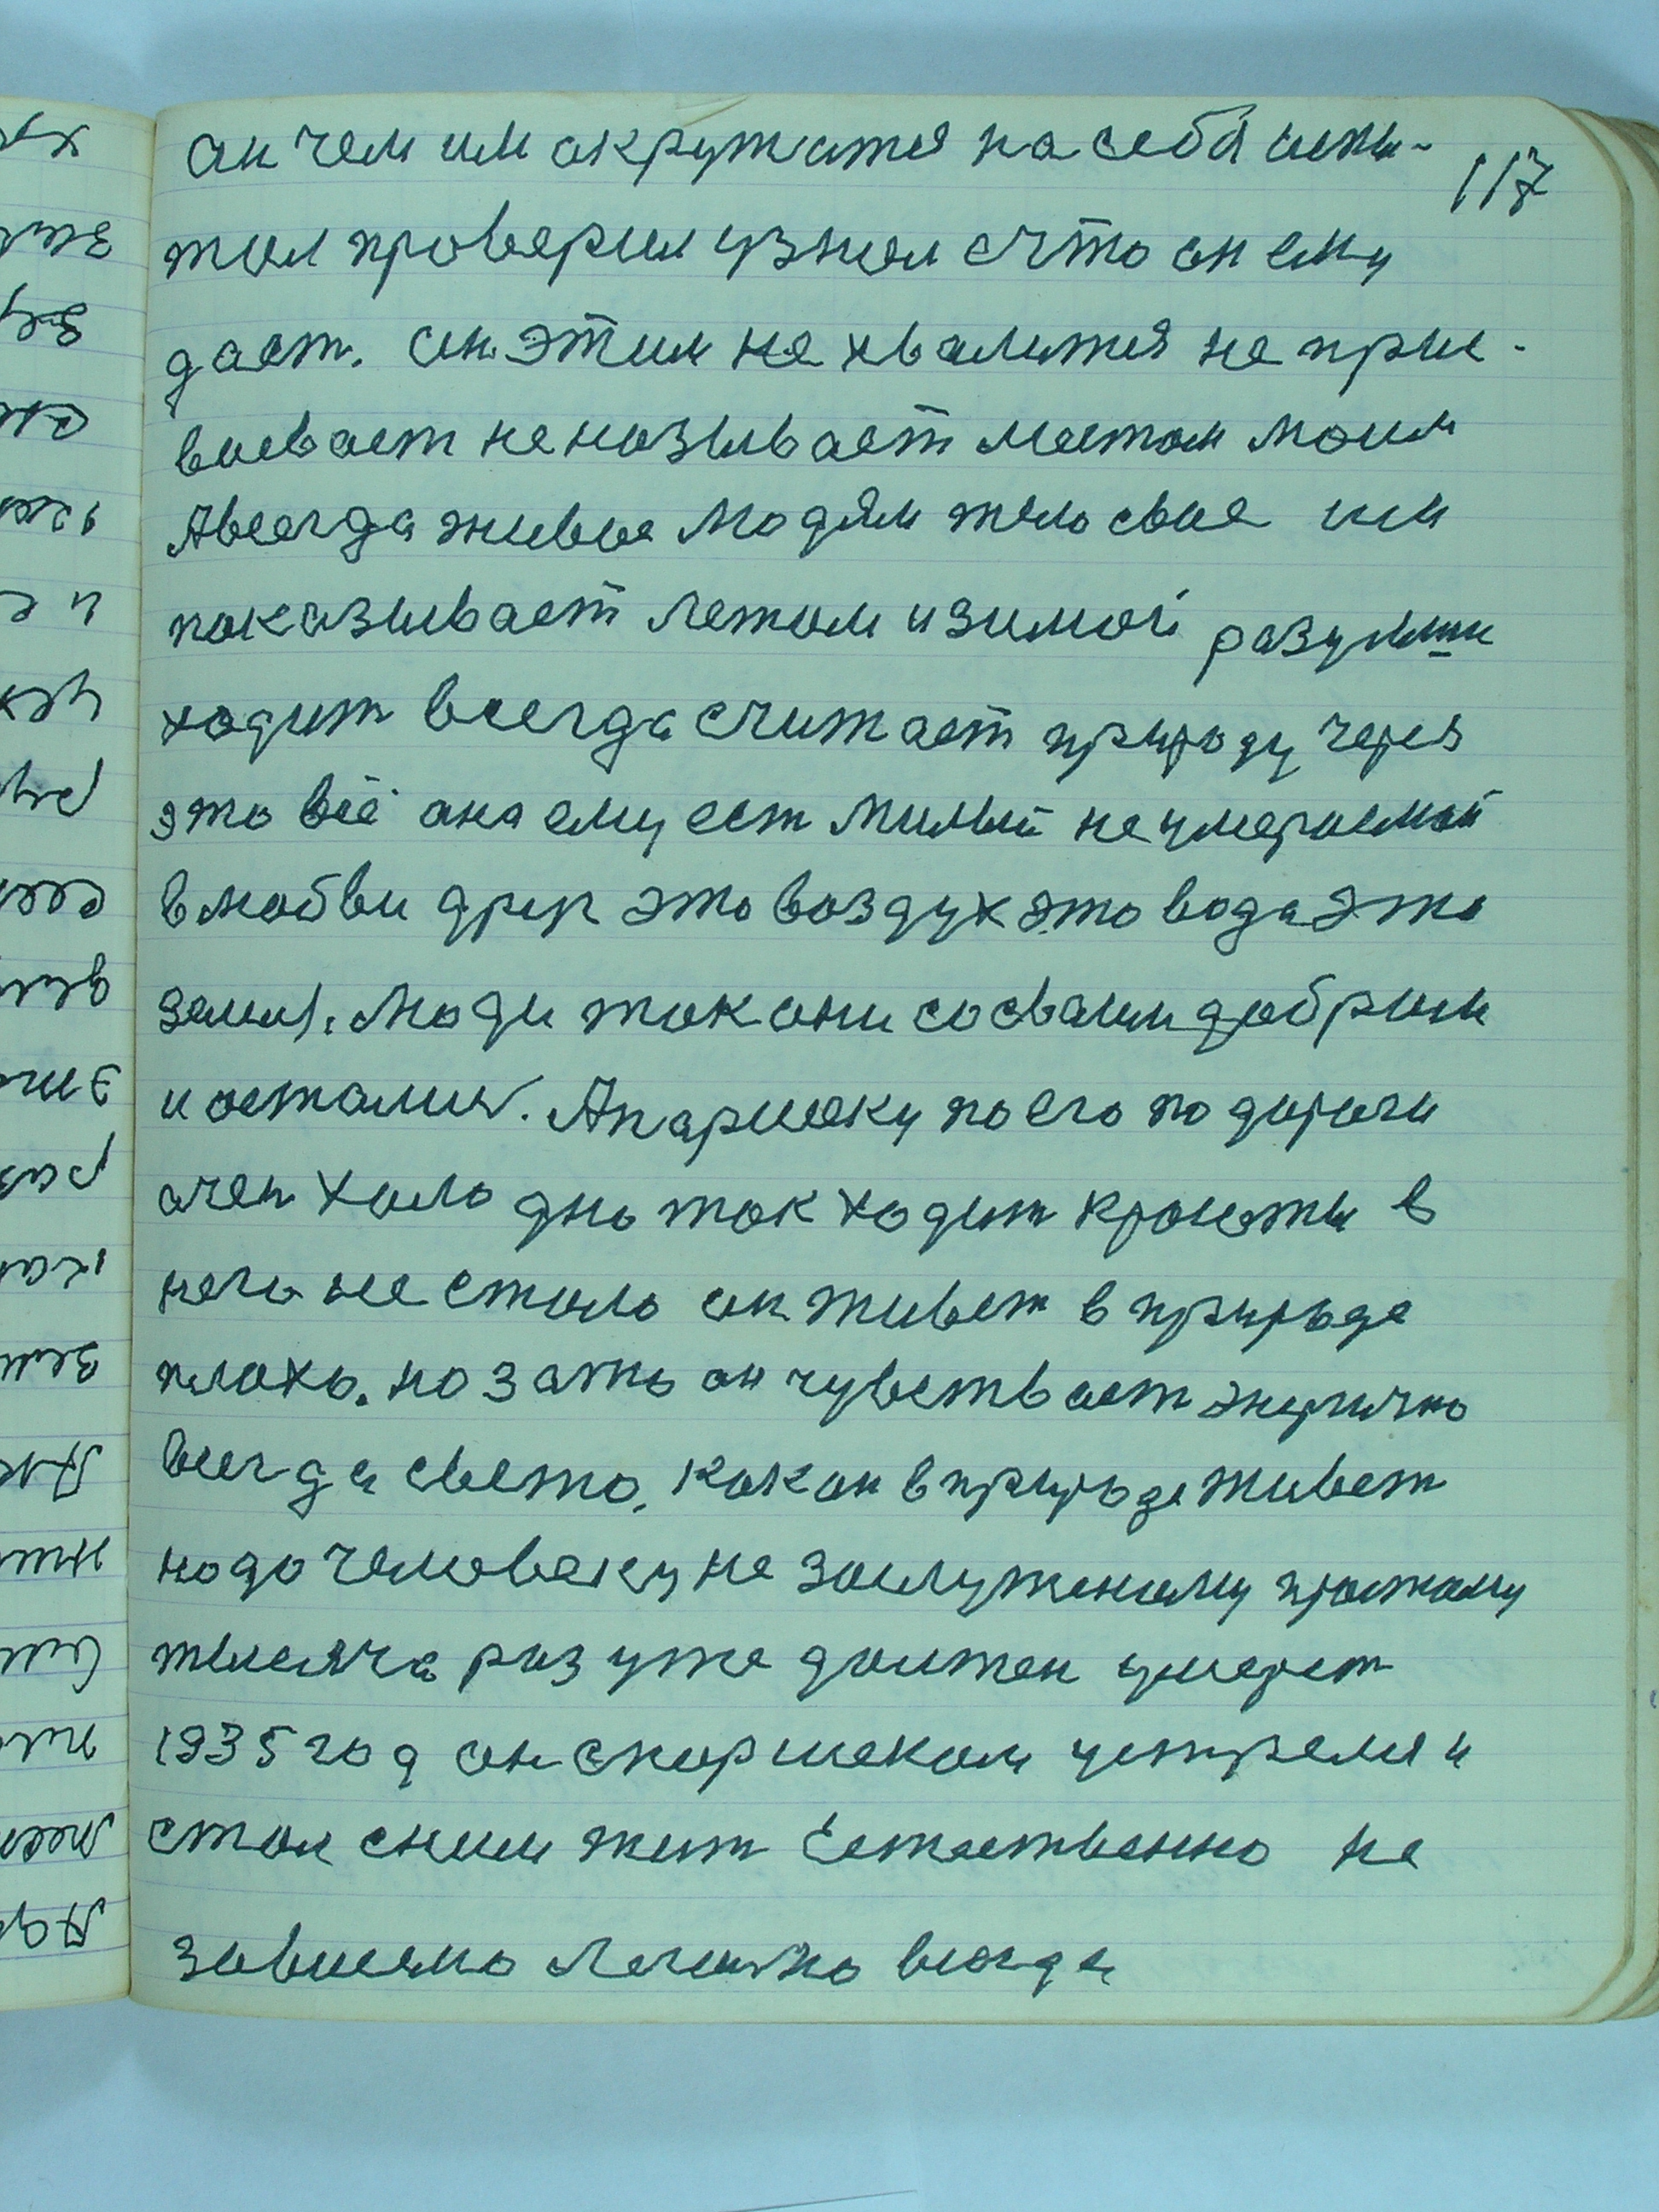 117
он чем им окружится на себя испы-
тол проверил узнал счто он ему
дает. он этим не хвалится не прис-
воевает не называет местом моим
А всегда живое людям тело свое им
показывает летом и зимой разумши
ходит всегда считает природу через
это всё она ему ест милый неумераемай
в любви друг это воздух это вода это
земля. Люди так они со сваим добрим
и остались. А паршеку по его по дороги
очен холодно так ходит крошты в
него не стало он живет в природе
плохо. но зато он чувствает энергично
всегда светло. как он в природе живет
надо человеку не заслуженому простому
тысяча раз уже должен умерет
1935 год он с паршеком устрелся и
стал с ним жит Естественно не
зависемо Легално всегда